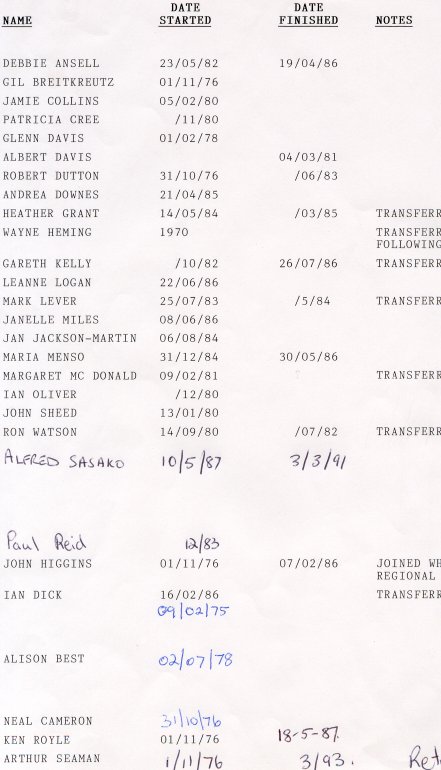 DATE DATE
NAME STARTED FINISHED NOTES
DEBBIE ANSELL 23/05/82 19/04/86
GIL BREITKREUTZ 01/11/76
JAMIE COLLINS 05/02/80
PATRICIA CREE /11/80
GLENN DAVIS 01/02/78
ALBERT DAVIS 04/03/81
ROBERT DUTTON 31/10/76 /06/83
ANDREA DOWNES 21/04/85
HEATHER GRANT 14/05/84 /03/85 TRANSFERR
WAYNE HEMING 1970 TRANSFERR
FOLLOWING
GARETH KELLY /10/82 26/07/86 TRANSFERR
LEANNE LOGAN 22/06/86
MARK LEVER 25/07/83 /5/84 TRANSFERR
JANELLE MILES 08/06/86
JAN JACKSON-MARTIN 06/08/84
MARIA MENSO 31/12/84 30/05/86
MARGARET MC DONALD 09/02/81 TRANSFERR
IAN OLIVER /12/80
JOHN SHEED 13/01/80
RON WATSON 14/09/80 /07/82 TRANSFERR
ALFRED SASAKO 10/5/87 3/3/91
Paul Reid 12/83
JOHN HIGGINS 01/11/76 07/02/86 JOINED WH
REGIONAL
IAN DICK 16/02/86 TRANSFERR
09/02/75
ALISON BEST 02/07/78
NEAL CAMERON 31/10/76
KEN ROYLE 01/11/76 18-5-87.
ARTHUR SEAMAN 1/11/76 3/93. Ret